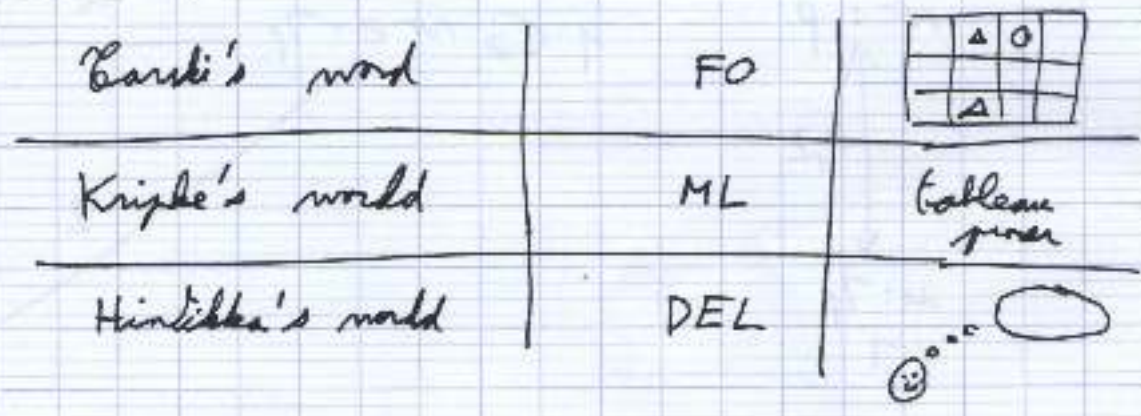 Tarski's word FO
Kripke's world ML tableau
prover
Hintikka's world DEL